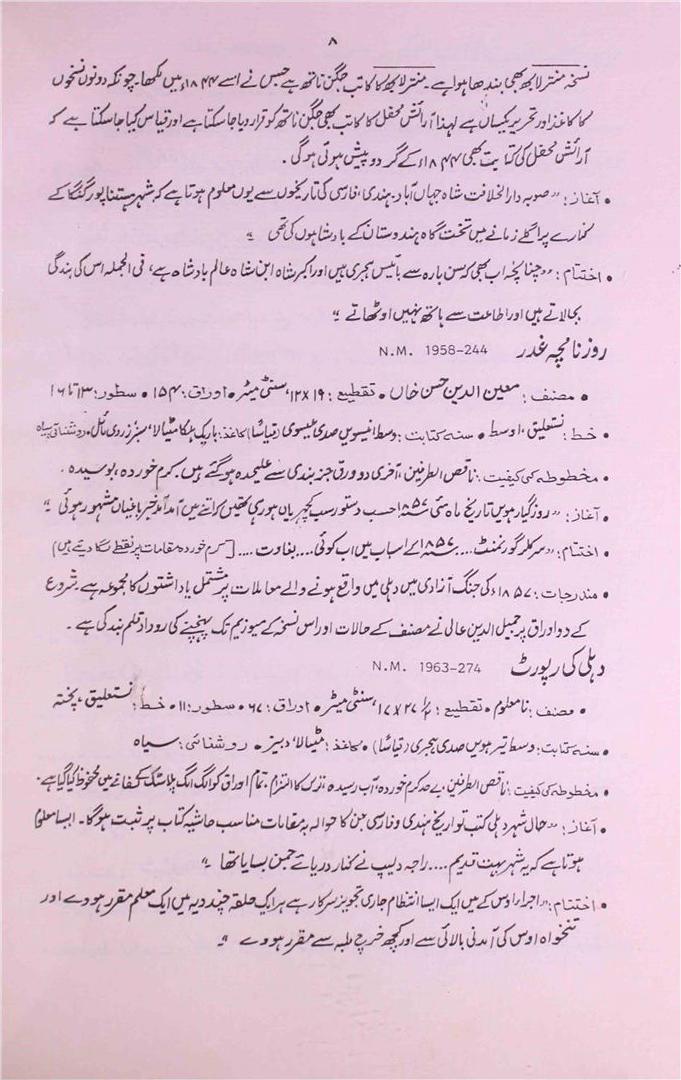 ۸
نسخہ منتر لابھ بھی بندھا ہوا ہے۔ منتر لابھ کا کاتب جگن ناتھ ہے جس نے اسے ۱۸۴۴ء میں لکھا۔ چونکہ دونوں نسخوں
کا کاغذ اور تحریر یکساں ہے لہذا آرائش محفل کا کاتب بھی جگن ناتھ کو قرار دیا جا سکتا ہے اور قیاس کیا جا سکتا ہے کہ
آرائش محفل کی کتابت بھی ۱۸۴۴ء کے گرد و پیش ہوئی ہوگی۔
• آغاز: "صوبہ دارالخلافت شاہ جہاں آباد۔ ہندی، فارسی کی تاریخوں سے یوں معلوم ہوتا ہے کہ شہر ہستناپور گنگا کے
کنارے پر اگلے زمانے میں تخت گاہ ہندوستان کے بادشاہوں کی تھی"
• اختتام: "چنانچہ اب بھی کہ سن بارہ سے بائیس ہجری ہیں اور اکبر شاہ ابن شاہ عالم بادشاہ ہے، فی الجملہ اس کی بندگی
بجا لاتے ہیں اور اطاعت سے ہاتھ نہیں اوٹھاتے"
روزنامچہ غدر N.M. 1958-244
• مصنف: معین الدین حسن خاں • تقطیع: ۱۹×۱۲، سنٹی میٹر • اوراق: ۱۵۴ • سطور: ۱۳ تا ۱۶
• خط: نستعلیق، اوسط • سنہ کتابت: وسط انیسویں صدی عیسوی (قیاسًا) کاغذ: باریک ہلکا مٹیالا، سبز زردی مائل • روشنائی سیاہ
• مخطوطہ کی کیفیت: ناقص الطرفین، آخری دو ورق جز بندی سے علیحدہ ہو گئے ہیں۔ کرم خوردہ، بوسیدہ۔
• آغاز: "روز گیارہویں تاریخ ماہ مئی ۱۸۵۷ء حسب دستور سب کچہریاں ہو رہی تھیں کہ اتنے میں آمد آمد خبر باغیاں مشہور ہوئی"
• اختتام: "سرکلر گورنمنٹ.... ۱۸۵۷ء کے اسباب میں اب کوئی.... بغاوت.... [کرم خوردہ مقامات پر نقطے لگا دیئے ہیں]
• مندرجات: ۱۸۵۷ء کی جنگ آزادی میں دہلی میں واقع ہونے والے معاملات پر مشتمل یاداشتوں کا مجموعہ ہے۔ شروع
کے دو اوراق پر جمیل الدین عالی نے مصنف کے حالات اور اس نسخہ کے میوزیم تک پہنچنے کی روداد قلم بند کی ہے۔
دہلی کی رپورٹ N.M. 1963-274
• مصنف: نامعلوم • تقطیع: ۲۷×۱۷، سنٹی میٹر • اوراق: ۶۷ • سطور: ۱۱ • خط: نستعلیق، پختہ
• سنہ کتابت: وسط تیرہویں صدی ہجری (قیاسًا) • کاغذ: مٹیالا، دبیز • روشنائی: سیاہ
• مخطوطہ کی کیفیت: ناقص الطرفین، بے حد کرم خوردہ، آب رسیدہ، ترک کا التزام، تمام اوراق کو الگ الگ پلاسٹک کے لفافے میں محفوظ کیا گیا ہے۔
• آغاز: "حال شہر دہلی کتب تواریخ ہندی و فارسی جن کا حوالہ بہ مقامات مناسب حاشیہ کتاب پر ثبت ہوگا۔ ایسا معلوم
ہوتا ہے کہ یہ شہر بہت قدیم.... راجہ دلیپ نے کنار دریائے جمن بسایا تھا"
• اختتام: "اجرا اوس کے میں ایک ایسا انتظام جاری تجویز سرکار ہے ہر ایک حلقہ چند دیہ میں ایک معلم مقرر ہووے اور
تنخواہ اوس کی آمدنی بالائی سے اور کچھ خرچ طلبہ سے مقرر ہووے"